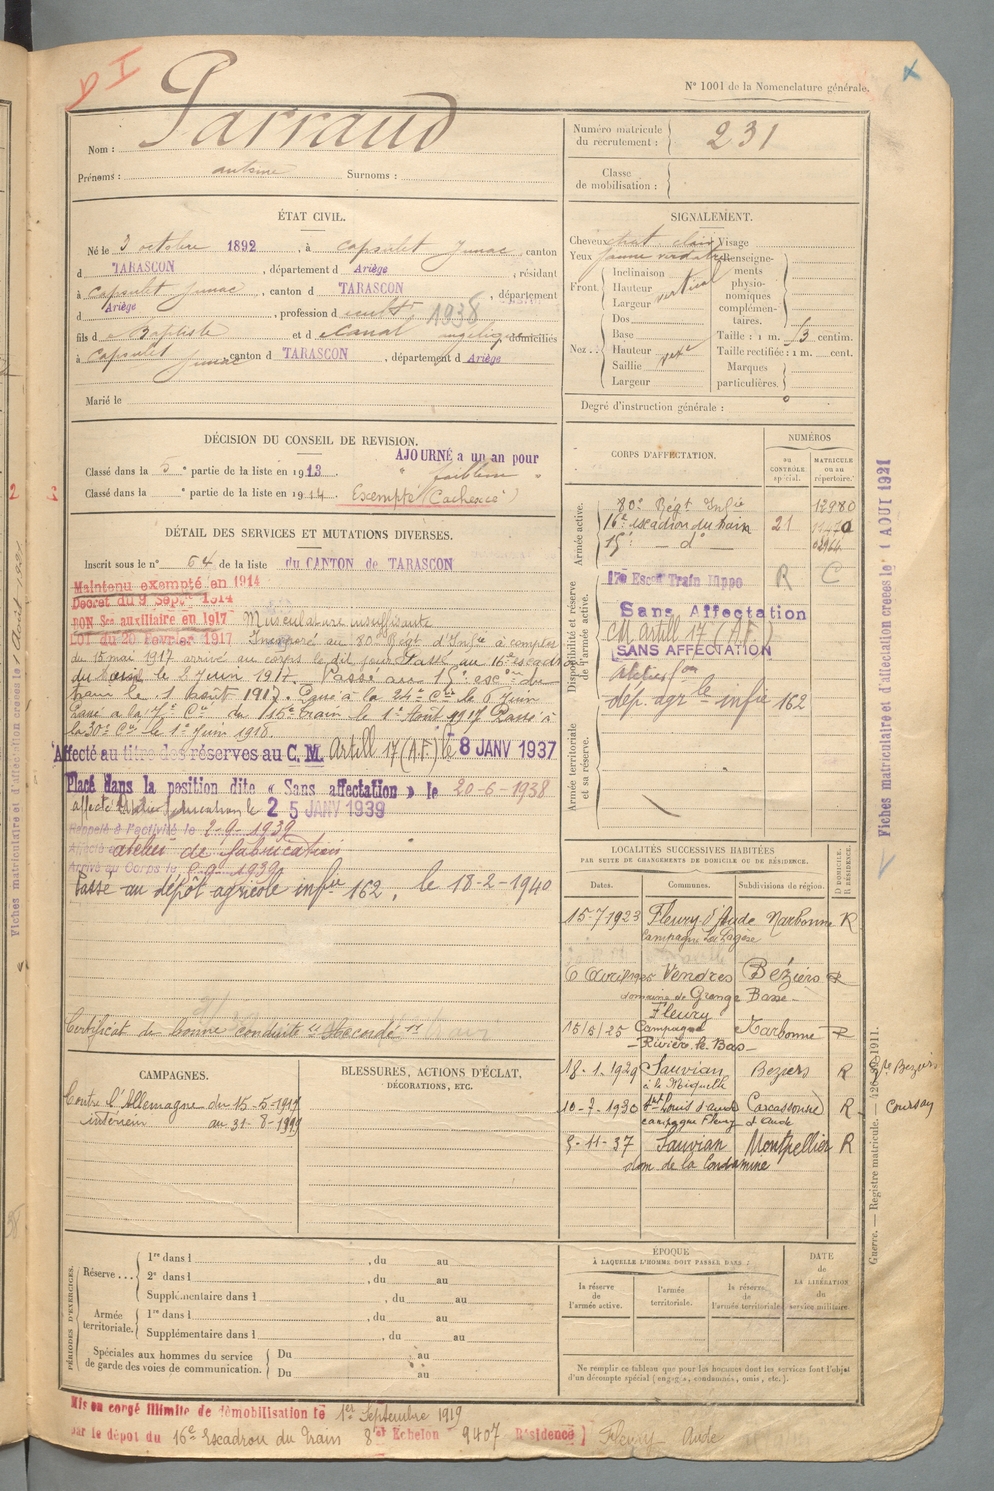 N° 1001 de la Nomenclature générale.
Nom : Parraud
Prénoms : antoine Surnoms :
Numéro matricule du recrutement : 231
Classe de mobilisation :
ÉTAT CIVIL.
Né le 3 octobre 1892, à Capoulet Junac, canton
d TARASCON, département d Ariège, résidant
à Capoulet Junac, canton d TARASCON, département
d Ariège, profession de cultr 1938
fils de Baptiste et de Canal angélique domiciliés
à Capoulet Junac canton d TARASCON, département d Ariège
Marié le
SIGNALEMENT.
Cheveux chat clair Visage
Yeux jaune verdatre Renseignements physionomiques complémentaires.
Front. Inclinaison Hauteur Largeur vertical
Nez. Dos Base Hauteur Saillie Largeur
Taille : 1 m. 53 centim.
Taille rectifiée : 1 m. cent.
Marques particulières.
Degré d'instruction générale : 0
DÉCISION DU CONSEIL DE REVISION.
AJOURNÉ a un an pour
Classé dans la 5e partie de la liste en 1913. " faiblesse "
Classé dans la e partie de la liste en 1914. Exempté (Cachexie)
DÉTAIL DES SERVICES ET MUTATIONS DIVERSES.
Inscrit sous le n° 64 de la liste du CANTON de TARASCON
Maintenu exempté en 1914
Décret du 9 Sept. 1914
BON Sce auxiliaire en 1917 Musculature insuffisante
LOI du 20 Février 1917 Incorporé au 80e Régt d'Infie à compter
du 15 mai 1917 arrivé au corps le dit jour Passé au 16e escadron
du train le 2 Juin 1917. Passé au 15e escon du
train le 1 Août 1917. Passé à la 24e Cie le 6 Juin
Passé a la 7e Cie du 15e train le 1er Août 1917 Passé à
la 30e Cie le 1er Juin 1918.
Affecté au titre des réserves au C. M. Artill 17 (A.F.) le 8 JANV 1937
Placé dans la position dite « Sans affectation » le 20-6-1938
affecté le 25 JANV 1939
Rappelé à l'activité le 2-9-1939
Affecté atelier de fabrication
Arrivé au Corps le 9-1939
Passé au dépôt agricole infie 162, le 18-2-1940
Certificat de bonne conduite "Accordé"
CORPS D'AFFECTATION.
NUMÉROS
au CONTRÔLE spécial. MATRICULE ou au répertoire.
Armée active.
80e Régt Infie 12980
16e escadron du train 21
15e — do —
Disponibilité et réserve de l'armée active.
17e Escon Train Hippo R C
Sans Affectation
CM artill 17 (A.F.)
SANS AFFECTATION
dép. agrle infie 162
Armée territoriale et sa réserve.
LOCALITÉS SUCCESSIVES HABITÉES
PAR SUITE DE CHANGEMENTS DE DOMICILE OU DE RÉSIDENCE.
Dates. Communes. Subdivisions de région. D DOMICILE. R RÉSIDENCE.
15-7-1923 Fleury d'Aude Narbonne R
Vendres Béziers R
domaine de Grange Basse
Fleury
15/5/25 Campagne Narbonne R
Rivière le Bas
18-1-1929 Sauvian Beziers R
10-7-1930 St Louis d'aude Carcassonne R Coursan
campagne Fleury d'aude
5-11-37 Sauvian Montpellier R
dom. de la Condamine
CAMPAGNES.
Contre l'Allemagne du 15-5-1917
intérieur au 31-8-1919
BLESSURES, ACTIONS D'ÉCLAT, DÉCORATIONS, ETC.
PÉRIODES D'EXERCICES.
Réserve... 1re dans l , du au
2e dans l , du au
Supplémentaire dans l , du au
Armée territoriale. 1re dans l , du au
Supplémentaire dans l , du au
Spéciales aux hommes du service de garde des voies de communication. Du au
Du au
ÉPOQUE
À LAQUELLE L'HOMME DOIT PASSER DANS :
la réserve de l'armée active. l'armée territoriale. la réserve de l'armée territoriale.
DATE de LA LIBÉRATION du service militaire.
Ne remplir ce tableau que pour les hommes dont les services font l'objet
d'un décompte spécial (engagés, condamnés, omis, etc.).
Mis en congé illimité de démobilisation le 1er Septembre 1919
par le dépôt du 16e Escadron du Train 8e Echelon 9407 Résidence Fleury Aude
Fiches matriculaire et d'affectation créées le 1 AOUT 1921
Guerre. — Registre matricule.